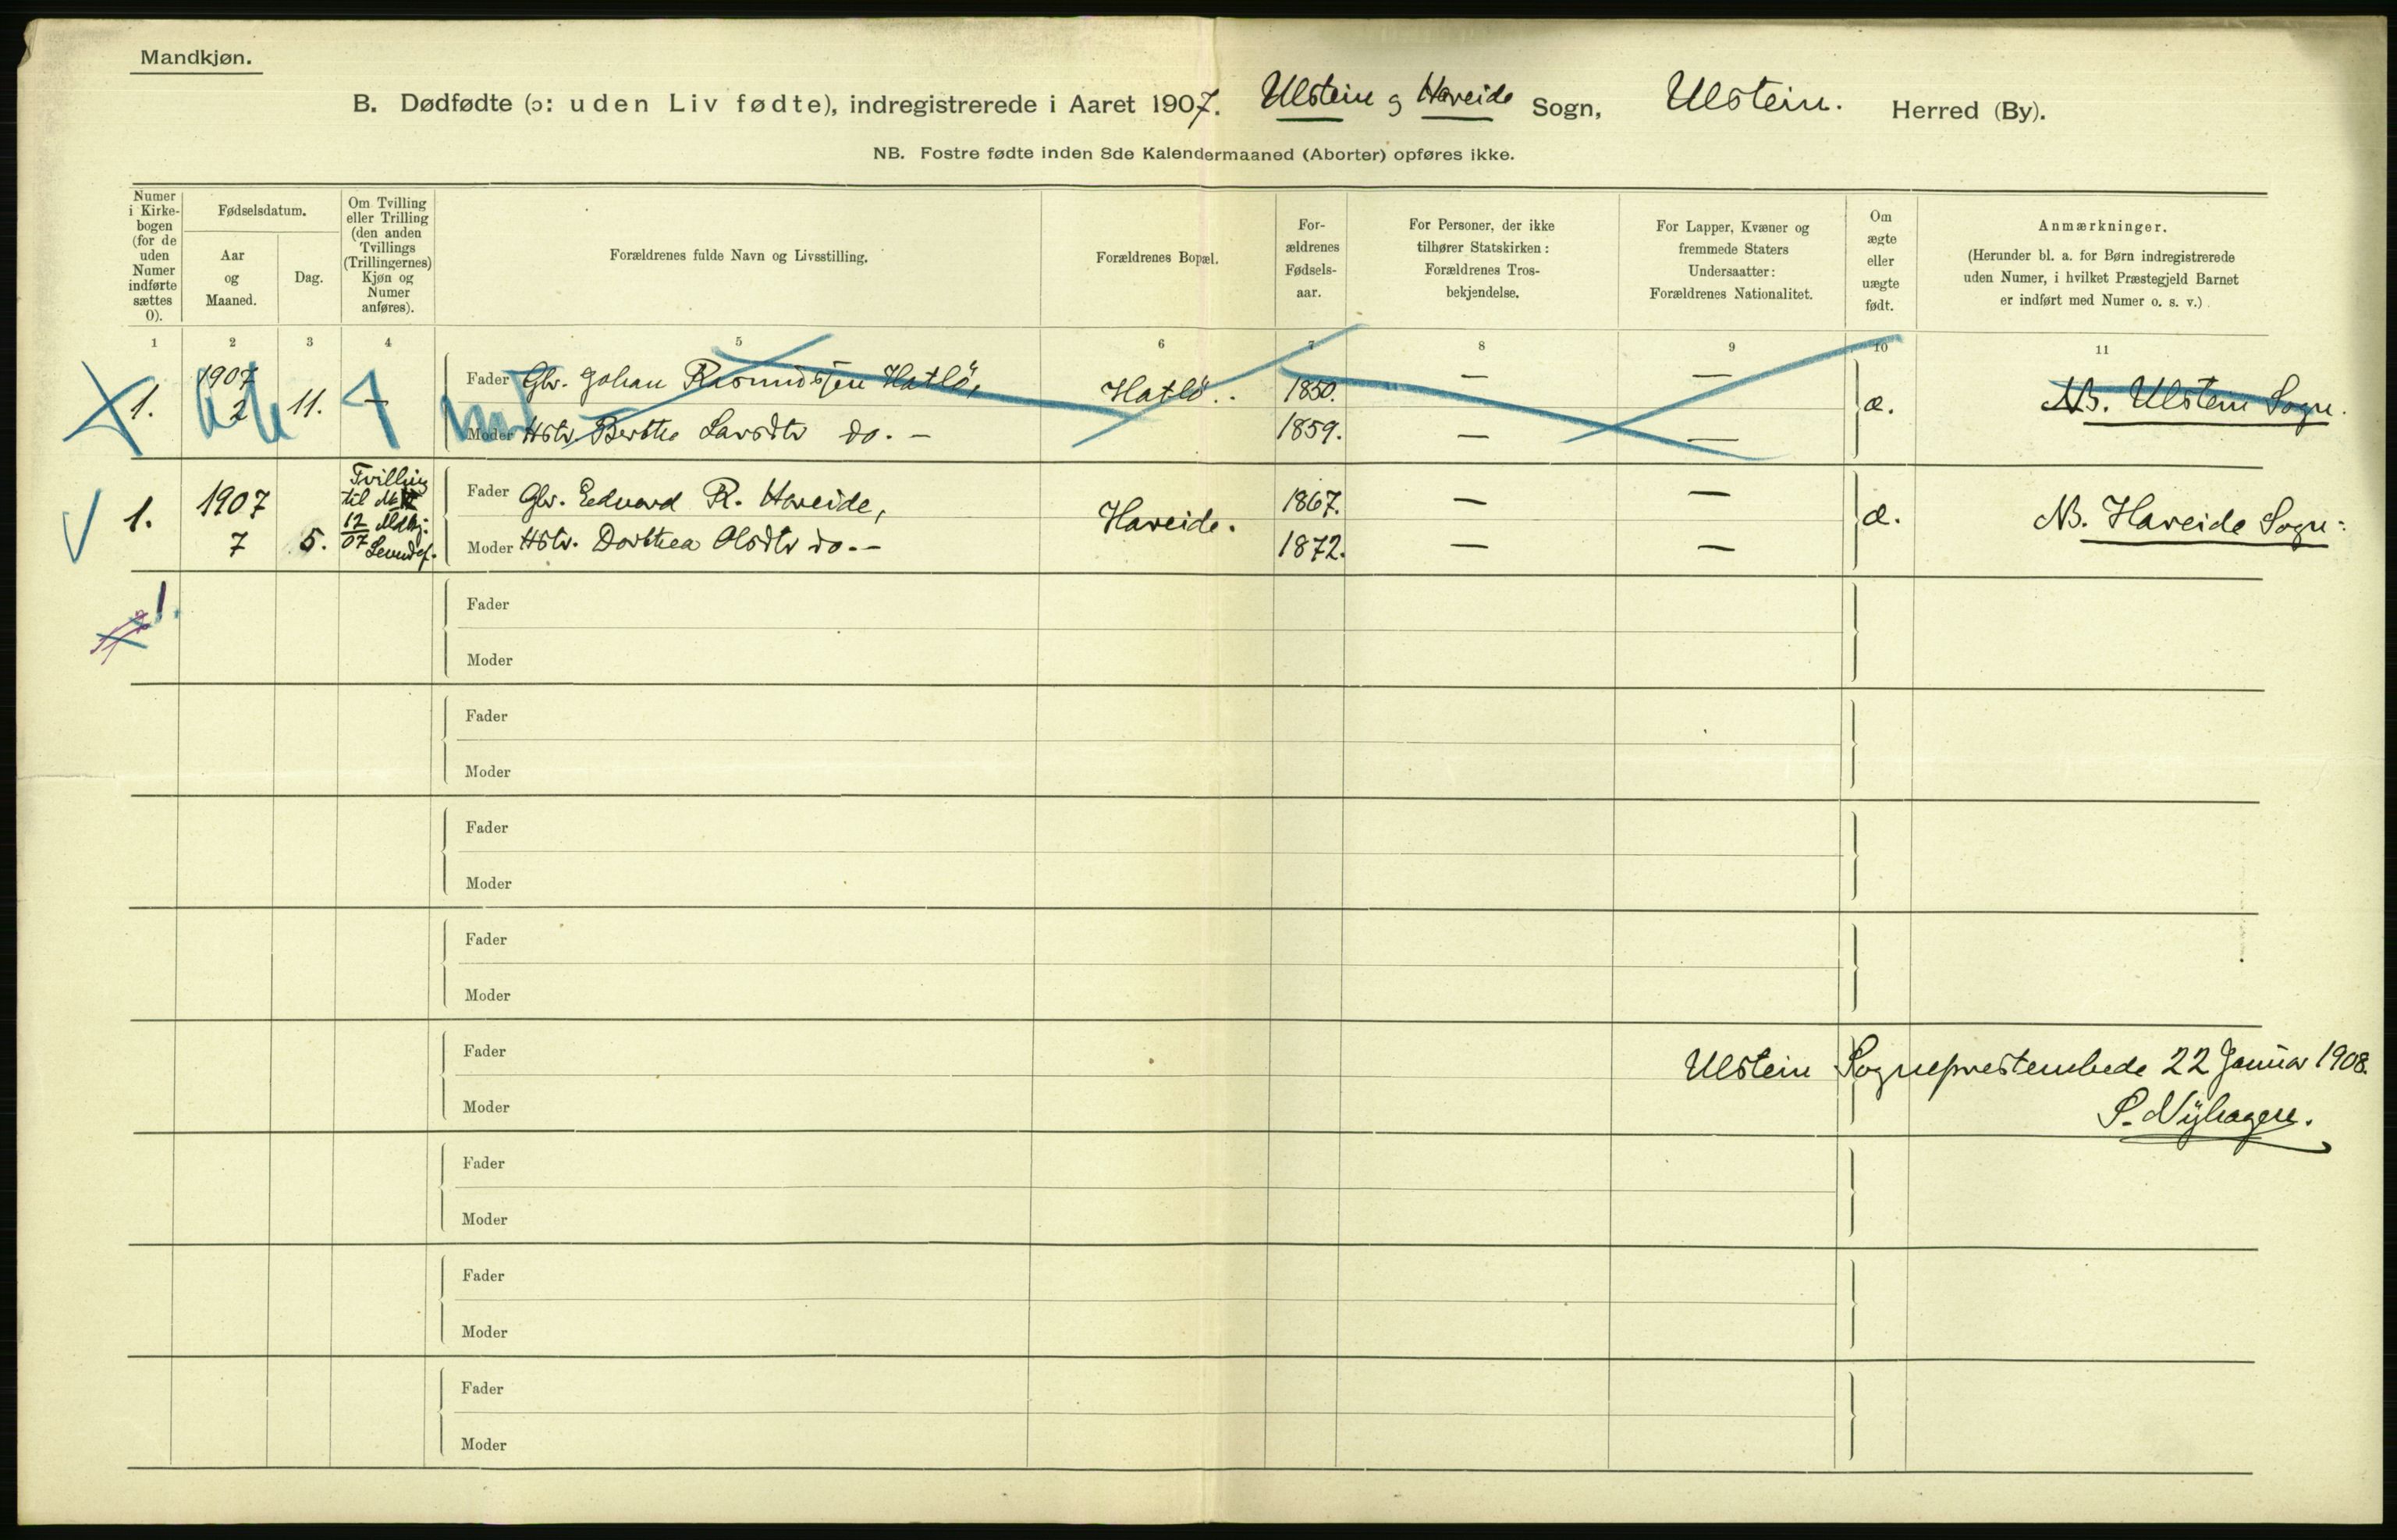 Mandkjøn.
B. Dødfødte (ɔ: uden Liv fødte), indregistrerede i Aaret 1907. Ulstein og Hareide Sogn, Ulstein. Herred (By).
NB. Fostre fødte inden 8de Kalendermaaned (Aborter) opføres ikke.
Numer
i Kirke-
bogen
(for de
uden
Numer
indførte
sættes
0).
Fødselsdatum.
Aar
og
Maaned.
Dag.
Om Tvilling
eller Trilling
(den anden
Tvillings
(Trillingernes)
Kjøn og
Numer
anføres).
Forældrenes fulde Navn og Livsstilling.
Forældrenes Bopæl.
For-
ældrenes
Fødsels-
aar.
For Personer, der ikke
tilhører Statskirken:
Forældrenes Tros-
bekjendelse.
For Lapper, Kvæner og
fremmede Staters
Undersaatter:
Forældrenes Nationalitet.
Om
ægte
eller
uægte
født.
Anmærkninger.
(Herunder bl. a. for Børn indregistrerede
uden Numer, i hvilket Præstegjeld Barnet
er indført med Numer o. s. v.)
1 2 3 4 5 6 7 8 9 10 11
1. 1907 2 11. —
Fader Gbr. Johan Rasmundsjen Hatlö, Hatlö. 1850. — —
Moder Hstr. Berthe Larsdtr do. — 1859. — —
æ. NB. Ulstein Sogn.
1. 1907 7 5.
Tvilling
til No
12 Mdkj:
07 Levendef.
Fader Gbr. Edvard R. Hareide, Hareide. 1867. — —
Moder Hstr. Dorthea Olsdtr do. — 1872. — —
æ. NB. Hareide Sogn:
1.
Fader
Moder
Fader
Moder
Fader
Moder
Fader
Moder
Fader
Ulstein Sogneprestembede 22 Januar 1908.
Moder
S. Nÿhagen.
Fader
Moder
Fader
Moder
Fader
Moder